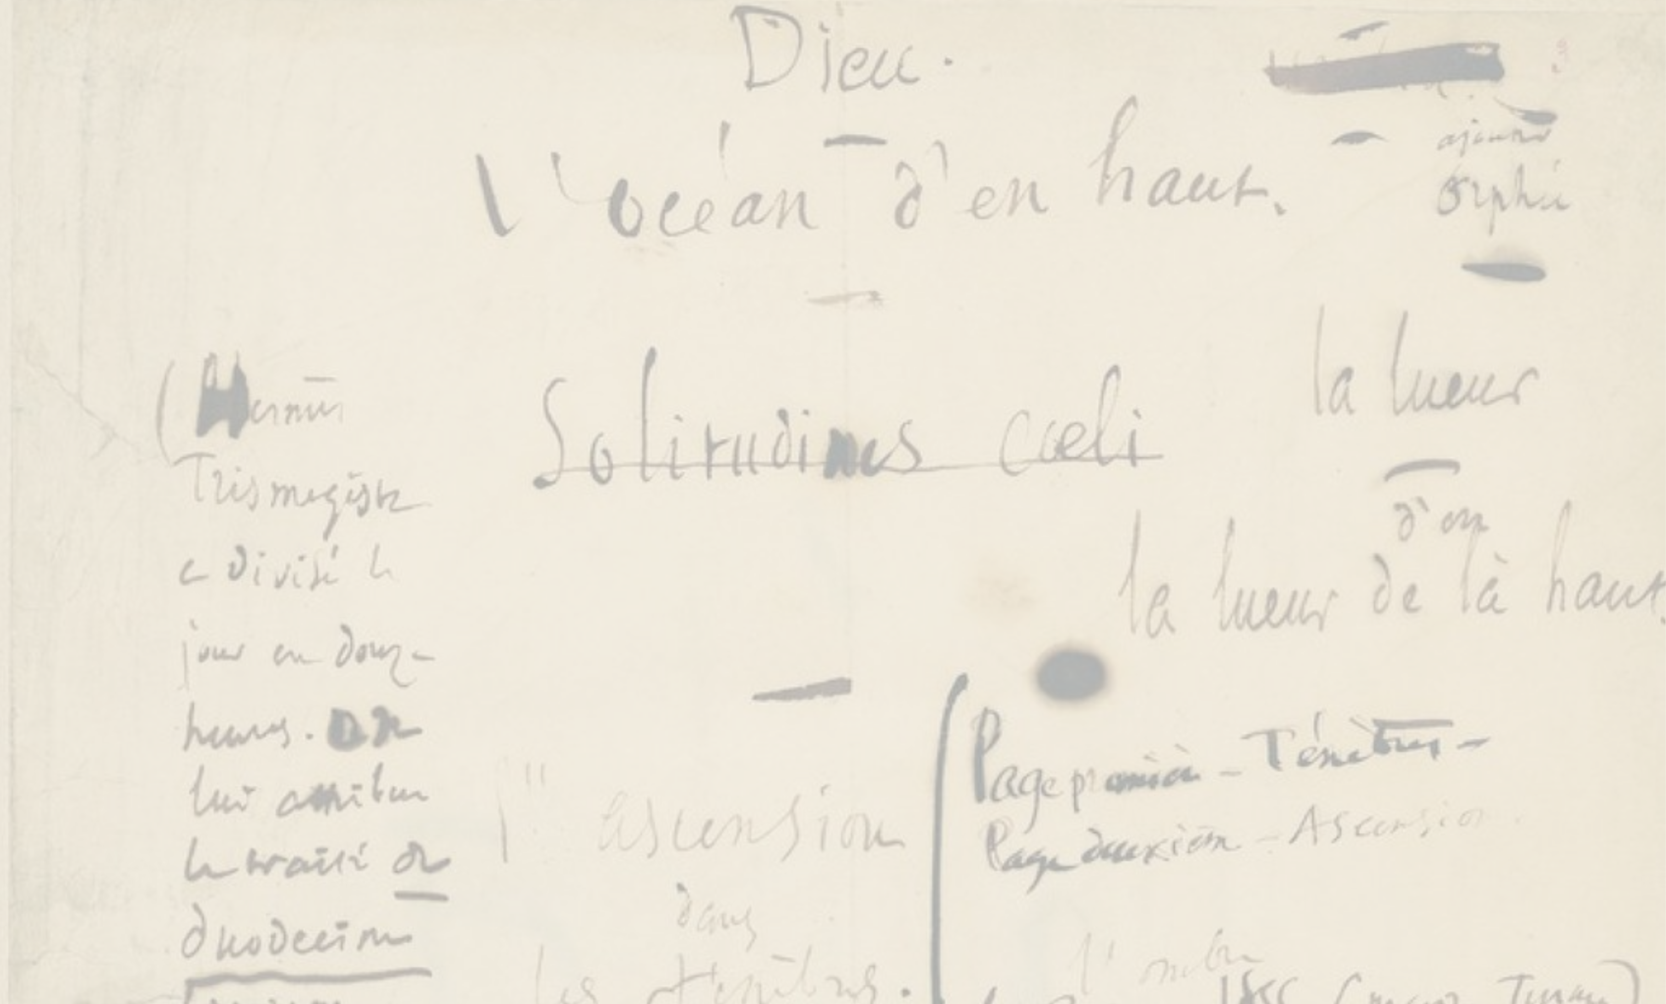 Dieu.
l'océan d'en haut.
ajouter
Orphée
Solitudines cœli
la lueur
d'en
la lueur de là haut.
(Hermès
Trismégiste
a divisé le
jour en douze
heures. On
lui attribue
le traité de
duodecim
l'ascension
dans
les ténèbres.
Page première - Ténèbres -
Page deuxième - Ascension
l'ombre